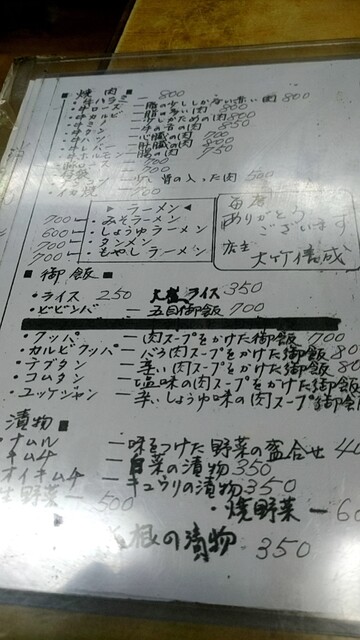 ■ 焼肉 800
・牛ハラミ — 脂の少ししかない赤い肉 800
・牛ロース — 脂の多い肉 800
・牛カルビ
・牛タン — 牛の舌の肉 850
・牛ハツ — 心臓の肉 700
・牛レバー — 肝臓の肉 800
・牛ホルモン — 腸の肉 750
700
の入った肉 500
・イカ焼 — 700
毎度
ありがとう
ございます
店主
大竹信成
▶ ラーメン ◀
700 ・みそラーメン
600 ・しょうゆラーメン
700 ・タンメン
700 ・もやしラーメン
■ 御飯
・ライス 250 大盛ライス 350
・ビビンバ — 五目御飯 700
・クッパ — 肉スープをかけた御飯 700
・カルビクッパ — バラ肉スープをかけた御飯 80
・テグタン — 辛い肉スープをかけた御飯 80
・コムタン — 塩味の肉スープをかけた御飯
・ユッケジャン — 辛いしょうゆ味の肉スープをかけた御飯
漬物
・ナムル — 味をつけた野菜の盛合せ 40
キムチ — 白菜の漬物 350
オイキムチ — キュウリの漬物 350
生野菜 — 500
・焼野菜 — 60
根の漬物 350